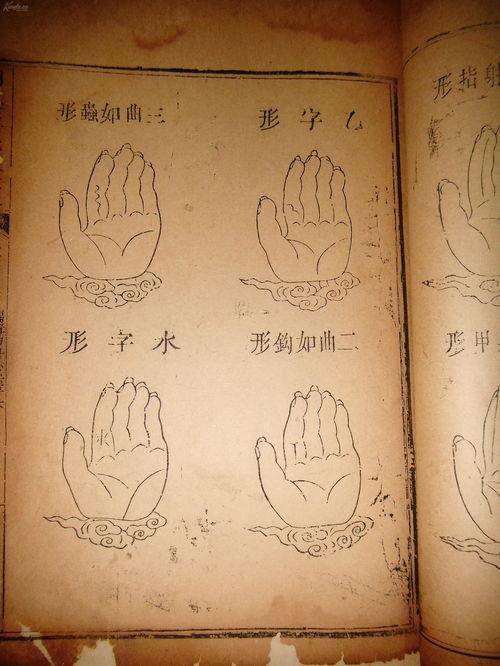 射指形
甲形
乙字形
三曲如蟲形
二曲如鈎形
水字形
水